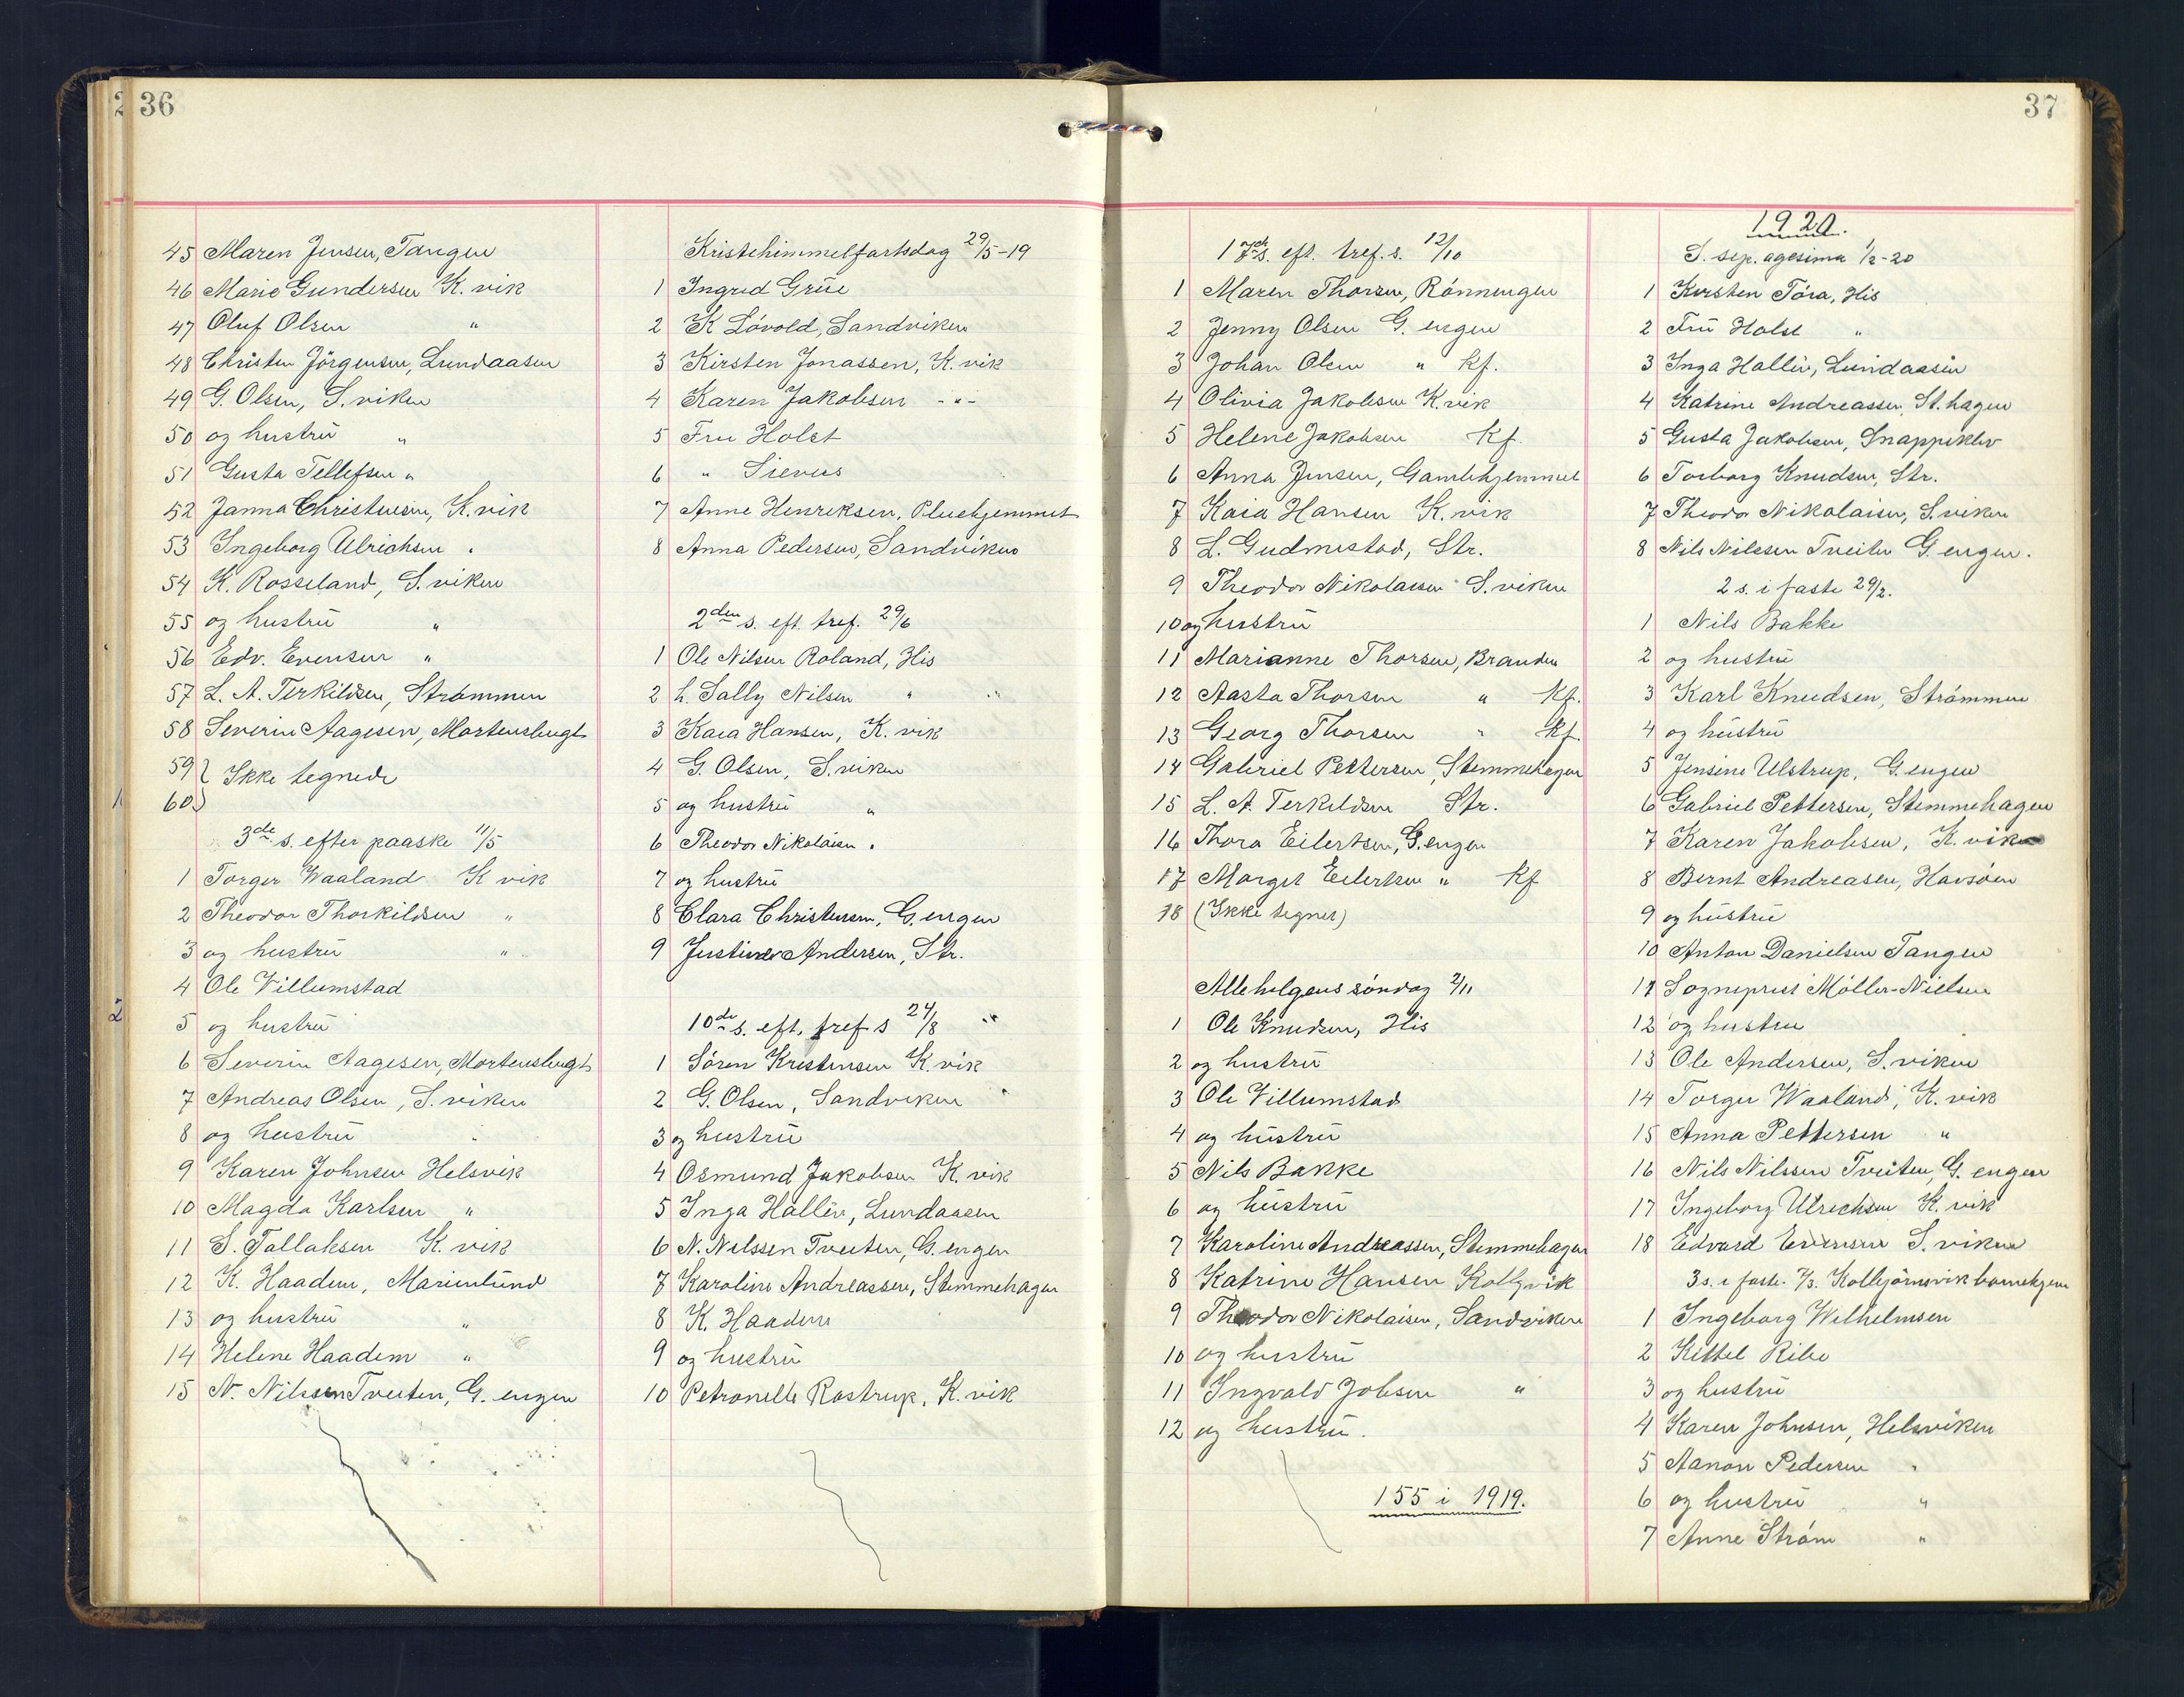 36
45 Maren Jensen, Tangen
46 Marie Gundersen K. vik
47 Oluf Olsen "
48 Christen Jörgensen, Lundaasen
49 G. Olsen, S. viken
50 og hustru "
51 Gusta Tellefsen "
52 Janna Christensen, K. vik
53 Ingeborg Ulrichsen "
54 K. Rosseland, S. viken
55 og hustru "
56 Edv. Evensen "
57 L. A. Terkildsen, Strömmen
58 Severin Aagesen, Mortensbugt
59 } Ikke tegnede
60
3de s. efter paaske 11/5
1 Torger Waaland K vik
2 Theodor Thorkildsen "
3 og hustru "
4 Ole Villumstad
5 og hustru
6 Severin Aagesen, Mortensbugt
7 Andreas Olsen, S. viken
8 og hustru
9 Karen Johnsen Helsvik
10 Magda Karlsen "
11 S. Tallaksen K. vik
12 K. Haadem, Marienlund
13 og hustru "
14 Helene Haadem "
15 N. Nilssen Tveiten, G. engen
Kristihimmelfartsdag 29/5-19
1 Ingrid Grüe
2 K Lövold, Sandviken
3 Kirsten Jonassen, K. vik
4 Karen Jakobsen -"-
5 Fru Holst
6 " Sievers
7 Anne Henriksen, Pleiehjemmet
8 Anna Pedersen, Sandviken
2den s. eft. tref. 29/6
1 Ole Nilsen Roland, His
2 h. Sally Nilsen " "
3 Kaia Hansen, K. vik
4 G. Olsen, S. viken
5 og hustru "
6 Theodor Nikolaisen "
7 og hustru
8 Clara Christensen, G. engen
9 Justine Andersen, Str.
10de s. eft. tref s 24/8 "
1 Sören Kristensen K. vik
2 G. Olsen, Sandviken "
3 og hustru
4 Osmund Jakobsen K. vik
5 Inga Hallén, Lundaasen
6 N. Nilssen Tveiten, G. engen
7 Karoline Andreassen, Stemmehagen
8 K. Haadem
9 og hustru
10 Petronelle Rostrup, K. vik
37
17de s. eft. tref. s. 12/10
1 Maren Thorsen, Rönningen
2 Jenny Olsen G. engen
3 Johan Olsen " Kf.
4 Olivia Jakobsen K. vik
5 Helene Jakobsen Kf.
6 Anna Jensen, Gamlehjemmet
7 Kaia Hansen K. vik
8 L. Gudmestad, Str.
9 Theodor Nikolaisen S. viken
10 og hustru
11 Marianne Thorsen, Branden
12 Aasta Thorsen " Kf.
13 Georg Thorsen " Kf.
14 Gabriel Pettersen, Stemmehagen
15 L. A. Terkildsen Str.
16 Thora Eilertsen, G. engen
17 Margit Eilertsen " Kf
18 (Ikke tegnet)
Allehelgens söndag 2/11
1 Ole Knudsen, His
2 og hustru
3 Ole Villumstad
4 og hustru
5 Nils Bakke
6 og hustru
7 Karoline Andreassen, Stemmehagen
8 Katrine Hansen Kolbj.vik
9 Theodor Nikolaisen, Sandviken
10 og hustru
11 Ingvald Jobsen "
12 og hustru.
155 i 1919.
1920.
S. sep. agesima 1/2-20
1 Kirsten Töra, His
2 Fru Holst "
3 Inga Hallén, Lundaasen
4 Katrine Andreassen, St. hagen
5 Gusta Jakobsen, Snappeklev
6 Torborg Knudsen, Str.
7 Theodor Nikolaisen, S. viken
8 Nils Nilssen Tveiten G. engen.
2 s. i faste 29/2.
1 Nils Bakke
2 og hustru
3 Karl Knudsen, Strömmen
4 og hustru
5 Jensine Ulstrup, G. engen
6 Gabriel Pettersen, Stemmehagen
7 Karen Jakobsen, K. vik
8 Bernt Andreasen, Havsöen
9 og hustru
10 Anton Danielsen Tangen
11 Sogneprest Möller-Nielsen
12 og hustru
13 Ole Andersen, S. viken
14 Torger Waaland, K. vik
15 Anna Pettersen "
16 Nils Nilssen Tveiten, G. engen
17 Ingeborg Ulrichsen K. vik
18 Edvard Evensen S. viken
3 s. i faste. 7/3. Kolbjörnsvik barnehjem
1 Ingeborg Wilhelmsen
2 Kittel Ribe
3 og hustru
4 Karen Johnsen, Helsviken
5 Aanon Pedersen "
6 og hustru "
7 Anne Ström "